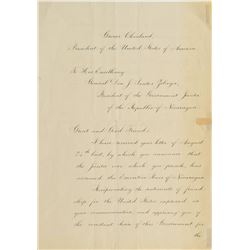 Grover Cleveland,
President of the United States of America.
To His Excellency
General Don J. Santos Zelaya,
President of the Government Junta
of the Republic of Nicaragua.
Great and Good Friend:
I have received your letter of August
25th last, by which you announce that
the Junta over which you preside has
assumed the Executive Power of Nicaragua.
Reciprocating the sentiments of friend
ship for the United States expressed in
your communication, and assuring you of
the constant desire of this Government for
the